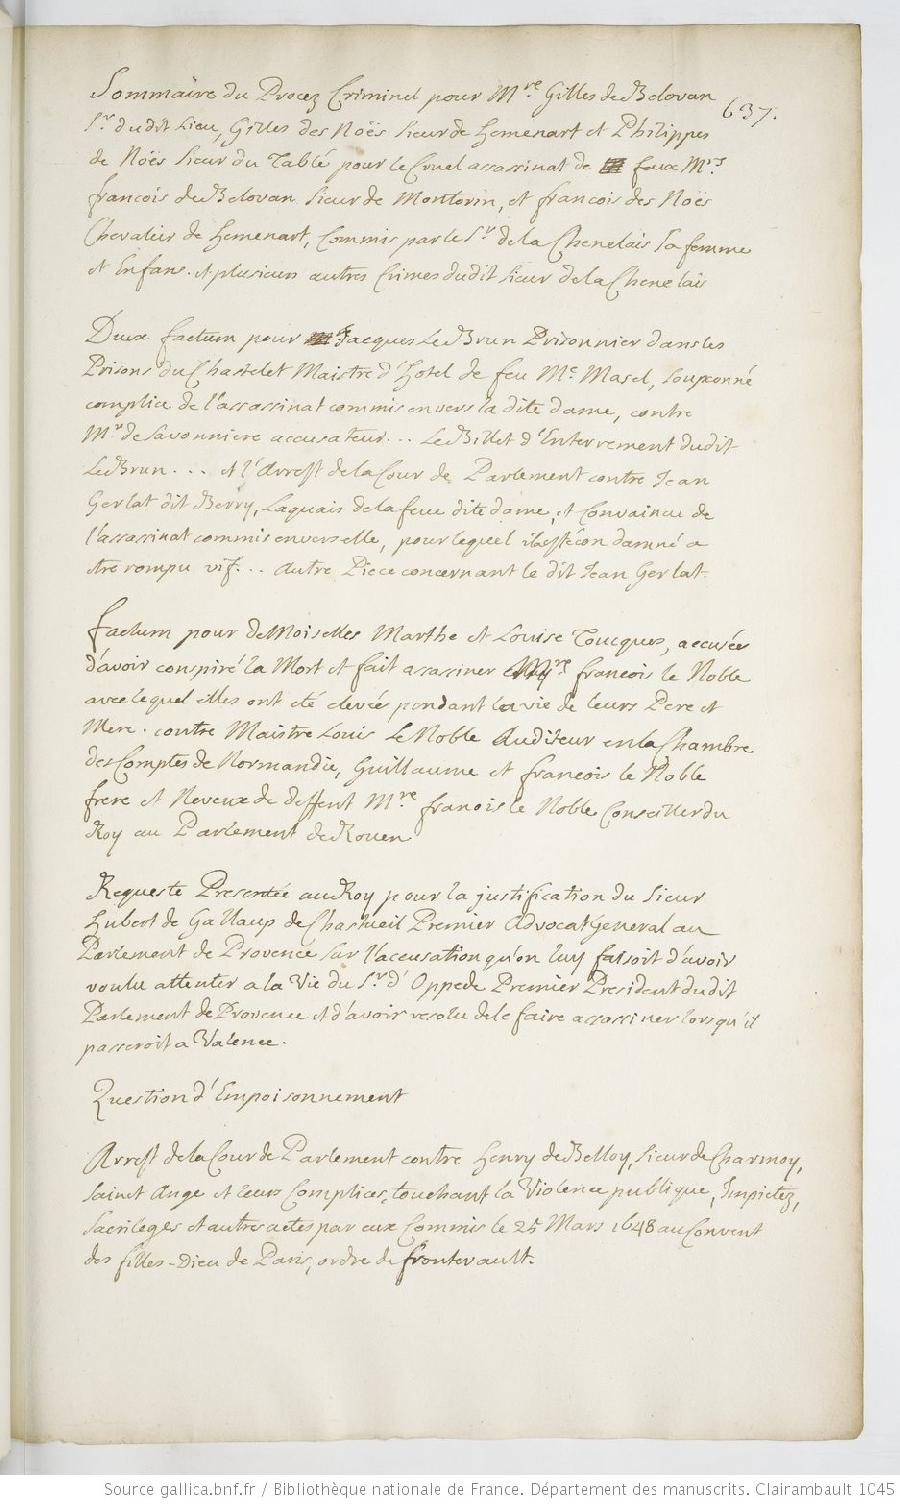 637.
Sommaire du Procez Criminel pour Mre. Gilles de Belovan
Sr. dudit Lieu, Gilles des Noës Sieur de Hemenart et Philippes
de Noës Sieur du Tablé pour le Cruel assassinat de feux Mrs
francois de Belovan Sieur de Montorin, et francois des Noës
Chevalier de Hemenart, Commis par le Sr. de la Chenelais sa femme
et Enfans. et plusieurs autres Crimes dudit Sieur de la Chenelais
Deux factum pour Jacques Le Brun Prisonnier dans les
Prisons du Chastelet Maistre d'Hotel de feu Me Masel, soupconné
complice de l'assassinat commis envers la dite dame, contre
Mr de Savonniere accusateur... Le Billet d'Enterrement dudit
Le Brun... et l'Arrest de la Cour de Parlement contre Jean
Gerlat dit Berry, Laquais de la feue dite dame, et Convaincu de
l'assassinat commis envers elle, pour lequel il a esté condamné a
etre rompu vif... Autre Piece concernant le dit Jean Gerlat.
factum pour deMoiselles Marthe et Louise Toucques, accusées
d'avoir conspiré la Mort et fait asassiner Mre francois le Noble
avec lequel elles ont eté elevée pendant la vie de leurs Pere et
Mere. contre Maistre Louis Le Noble Auditeur en la Chambre
des Comptes de Normandie, Guillaume et francois le Noble
frere et Neveux de deffent Mre. franois le Noble Conseiller du
Roy au Parlement de Rouen
Requeste Presentée au Roy pour la justification du Sieur
Hubert de Gallaup de Chasteuil Premier Advocat General au
Parlement de Provence sur l'accusation qu'on luy faisoit d'avoir
voulu attenter a la Vie du Sr. d'Oppede Premier President dudit
Parlement de Provence et d'avoir resolu de le faire assassiner lorsqu'il
passeroit a Valence.
Question d'Empoisonnement
Arrest de la Cour de Parlement contre Henry de Belloy, Sieur de Charmoy,
Sainct Ange et leurs Complices, touchant la Violence publique, Impietez,
Sacrileges et autres actes par eux Commis le 25 Mars 1648 au Convent
des filles-Dieu de Paris, ordre de frontevault.
Source gallica.bnf.fr / Bibliothèque nationale de France. Département des manuscrits. Clairambault 1045